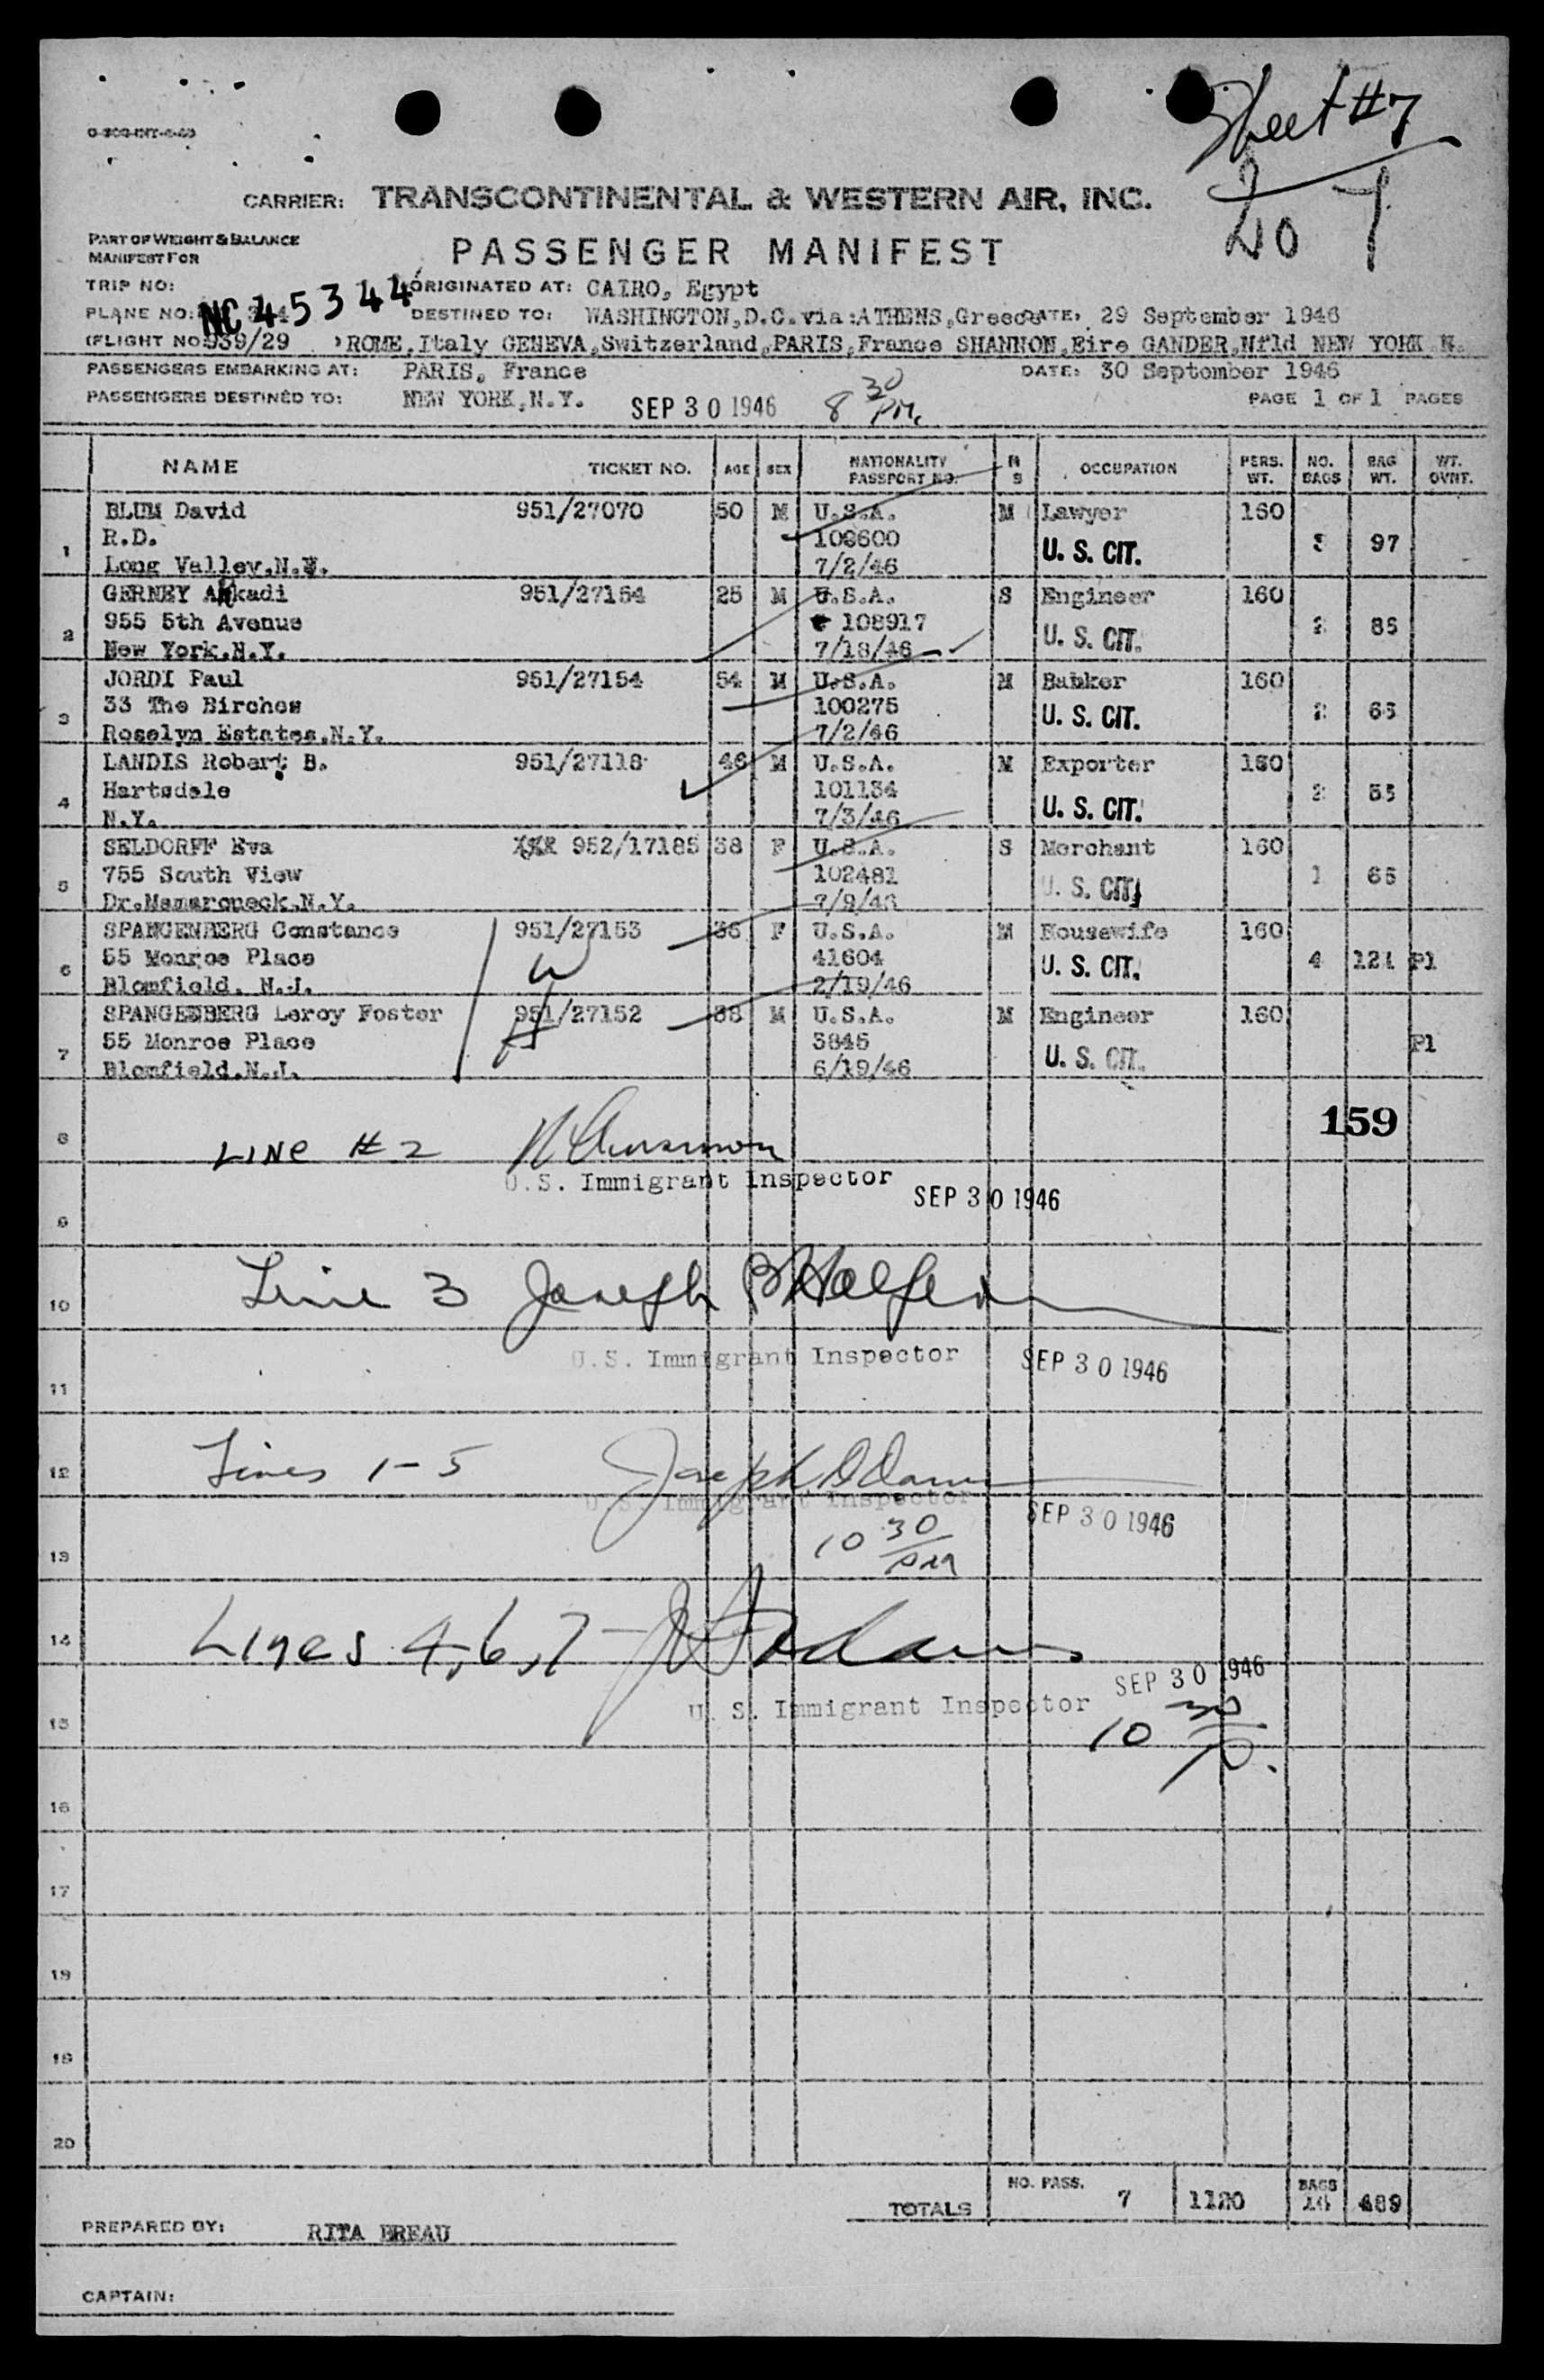 Sheet #7
CARRIER: TRANSCONTINENTAL & WESTERN AIR, INC.
PART OF WEIGHT & BALANCE
MANIFEST FOR
PASSENGER MANIFEST
TRIP NO: ORIGINATED AT: CAIRO, Egypt
PLANE NO: NC 45344 DESTINED TO: WASHINGTON,D.C.via:ATHENS,Greece DATE: 29 September 1946
(FLIGHT NO 939/29 ) ROME,Italy GENEVA,Switzerland,PARIS,France SHANNON,Eire GANDER,Nfld NEW YORK N.
PASSENGERS EMBARKING AT: PARIS, France DATE: 30 September 1946
PASSENGERS DESTINED TO: NEW YORK,N.Y. SEP 30 1946 8 30 PM. PAGE 1 OF 1 PAGES
NAME TICKET NO. AGE SEX NATIONALITY PASSPORT NO. M S OCCUPATION PERS. WT. NO. BAGS BAG WT. WT. OVNT.
BLUM David 951/27070 50 M U.S.A. M Lawyer 160
1 R.D. 108600 U. S. CIT. 3 97
Long Valley.N.Y. 7/2/46
GERNEY Arkadi 951/27154 25 M U.S.A. S Engineer 160
2 955 5th Avenue 108917 U. S. CIT. 2 85
New York.N.Y. 7/18/46
JORDI Paul 951/27154 54 M U.S.A. M Banker 160
3 33 The Birches 100275 U. S. CIT. 2 65
Roselyn Estates.N.Y. 7/2/46
LANDIS Robert B. 951/27118 46 M U.S.A. M Exporter 160
4 Hartsdale 101134 U. S. CIT. 2 55
N.Y. 7/3/46
SELDORFF Eva 952/17185 38 F U.S.A. S Merchant 160
5 755 South View 102481 U. S. CIT. 1 66
Dr.Mamaroneck.N.Y. 7/9/46
SPANGENBERG Constance 951/27153 36 F U.S.A. M Housewife 160
6 55 Monroe Place 41604 U. S. CIT. 4 121 Pl
Blomfield. N.J. 2/19/46
SPANGENBERG Leroy Foster 951/27152 38 M U.S.A. M Engineer 160
7 55 Monroe Place 3846 U. S. CIT. Pl
Blomfield.N.J. 6/19/46
8 159
LINE # 2
U.S. Immigrant Inspector SEP 30 1946
9
10 Line 3 Joseph B
U.S. Immigrant Inspector SEP 30 1946
11
12 Lines 1-5 Joseph
U.S. Immigrant Inspector SEP 30 1946
13 10 30 PM
14 Lines 4,6,7 Adams
SEP 30 1946
15 U. S. Immigrant Inspector 10 30 P.
16
17
18
19
20
TOTALS NO. PASS. 7 1120 BAGS 14 489
PREPARED BY: RITA BREAU
CAPTAIN: